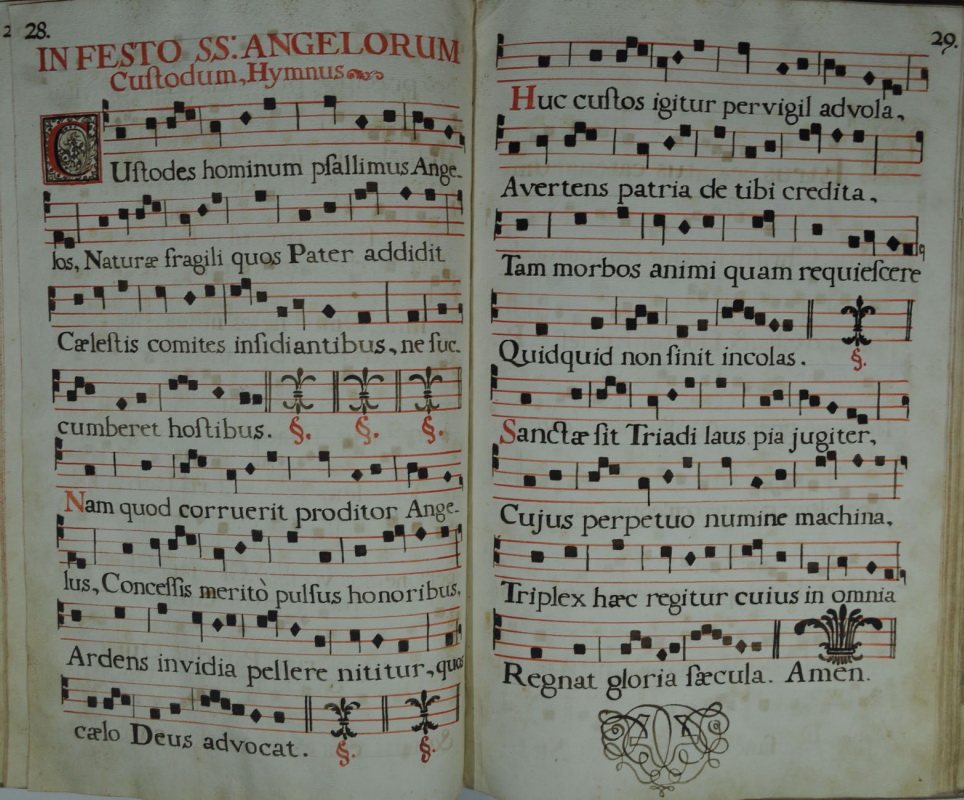 28.
IN FESTO SS: ANGELORUM
Cuſtodum, Hymnus
CUſtodes hominum pſallimus Ange-
los, Naturæ fragili quos Pater addidit
Cæleſtis comites inſidiantibus, ne ſuc-
cumberet hoſtibus. §. §. §.
Nam quod corruerit proditor Ange-
lus, Conceſſis meritò pulſus honoribus,
Ardens invidia pellere nititur, quos
cælo Deus advocat. §. §.
29.
Huc cuſtos igitur pervigil advola,
Avertens patria de tibi credita,
Tam morbos animi quam requieſcere
Quidquid non ſinit incolas. §.
Sanctæ ſit Triadi laus pia jugiter,
Cujus perpetuo numine machina,
Triplex hæc regitur cuius in omnia
Regnat gloria ſæcula. Amen.